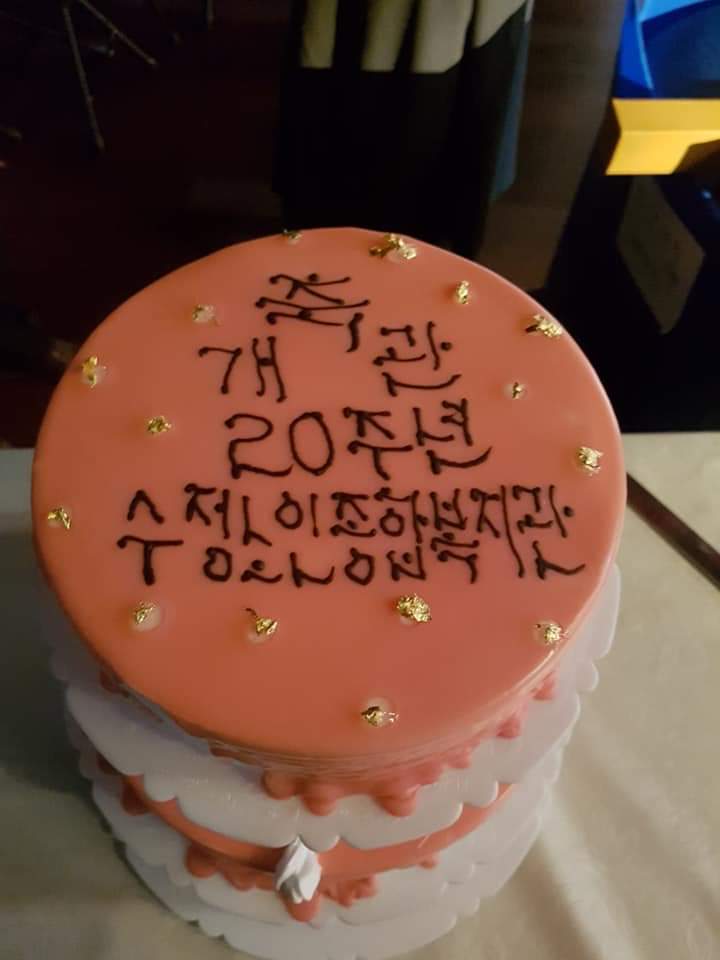 축
개 관
20주년
수정노인종합복지관